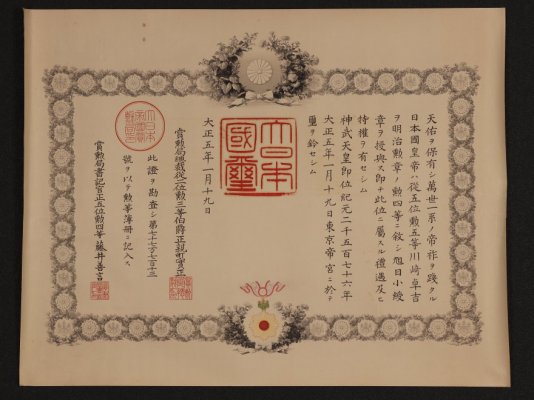 天佑ヲ保有シ萬世一系ノ帝祚ヲ踐タル
日本國皇帝ハ從五位勲五等川﨑卓吉
ヲ明治勲章ノ勲四等ニ敍シ旭日小綬
章ヲ授與ス即チ此位ニ屬スル禮遇及ヒ
特權ヲ有セシム
神武天皇即位紀元二千五百七十六年
大正五年一月十九日東京帝宮ニ於テ
璽ヲ鈐セシム
大日本
國璽
大正五年一月十九日
賞勲局總裁從二位勲三等伯爵正親町實正
此證ヲ勘査シ第七十七万七百十三
號ヲ以テ勲等簿冊ニ記入ス
賞勲局書記官正五位勲四等藤井善言